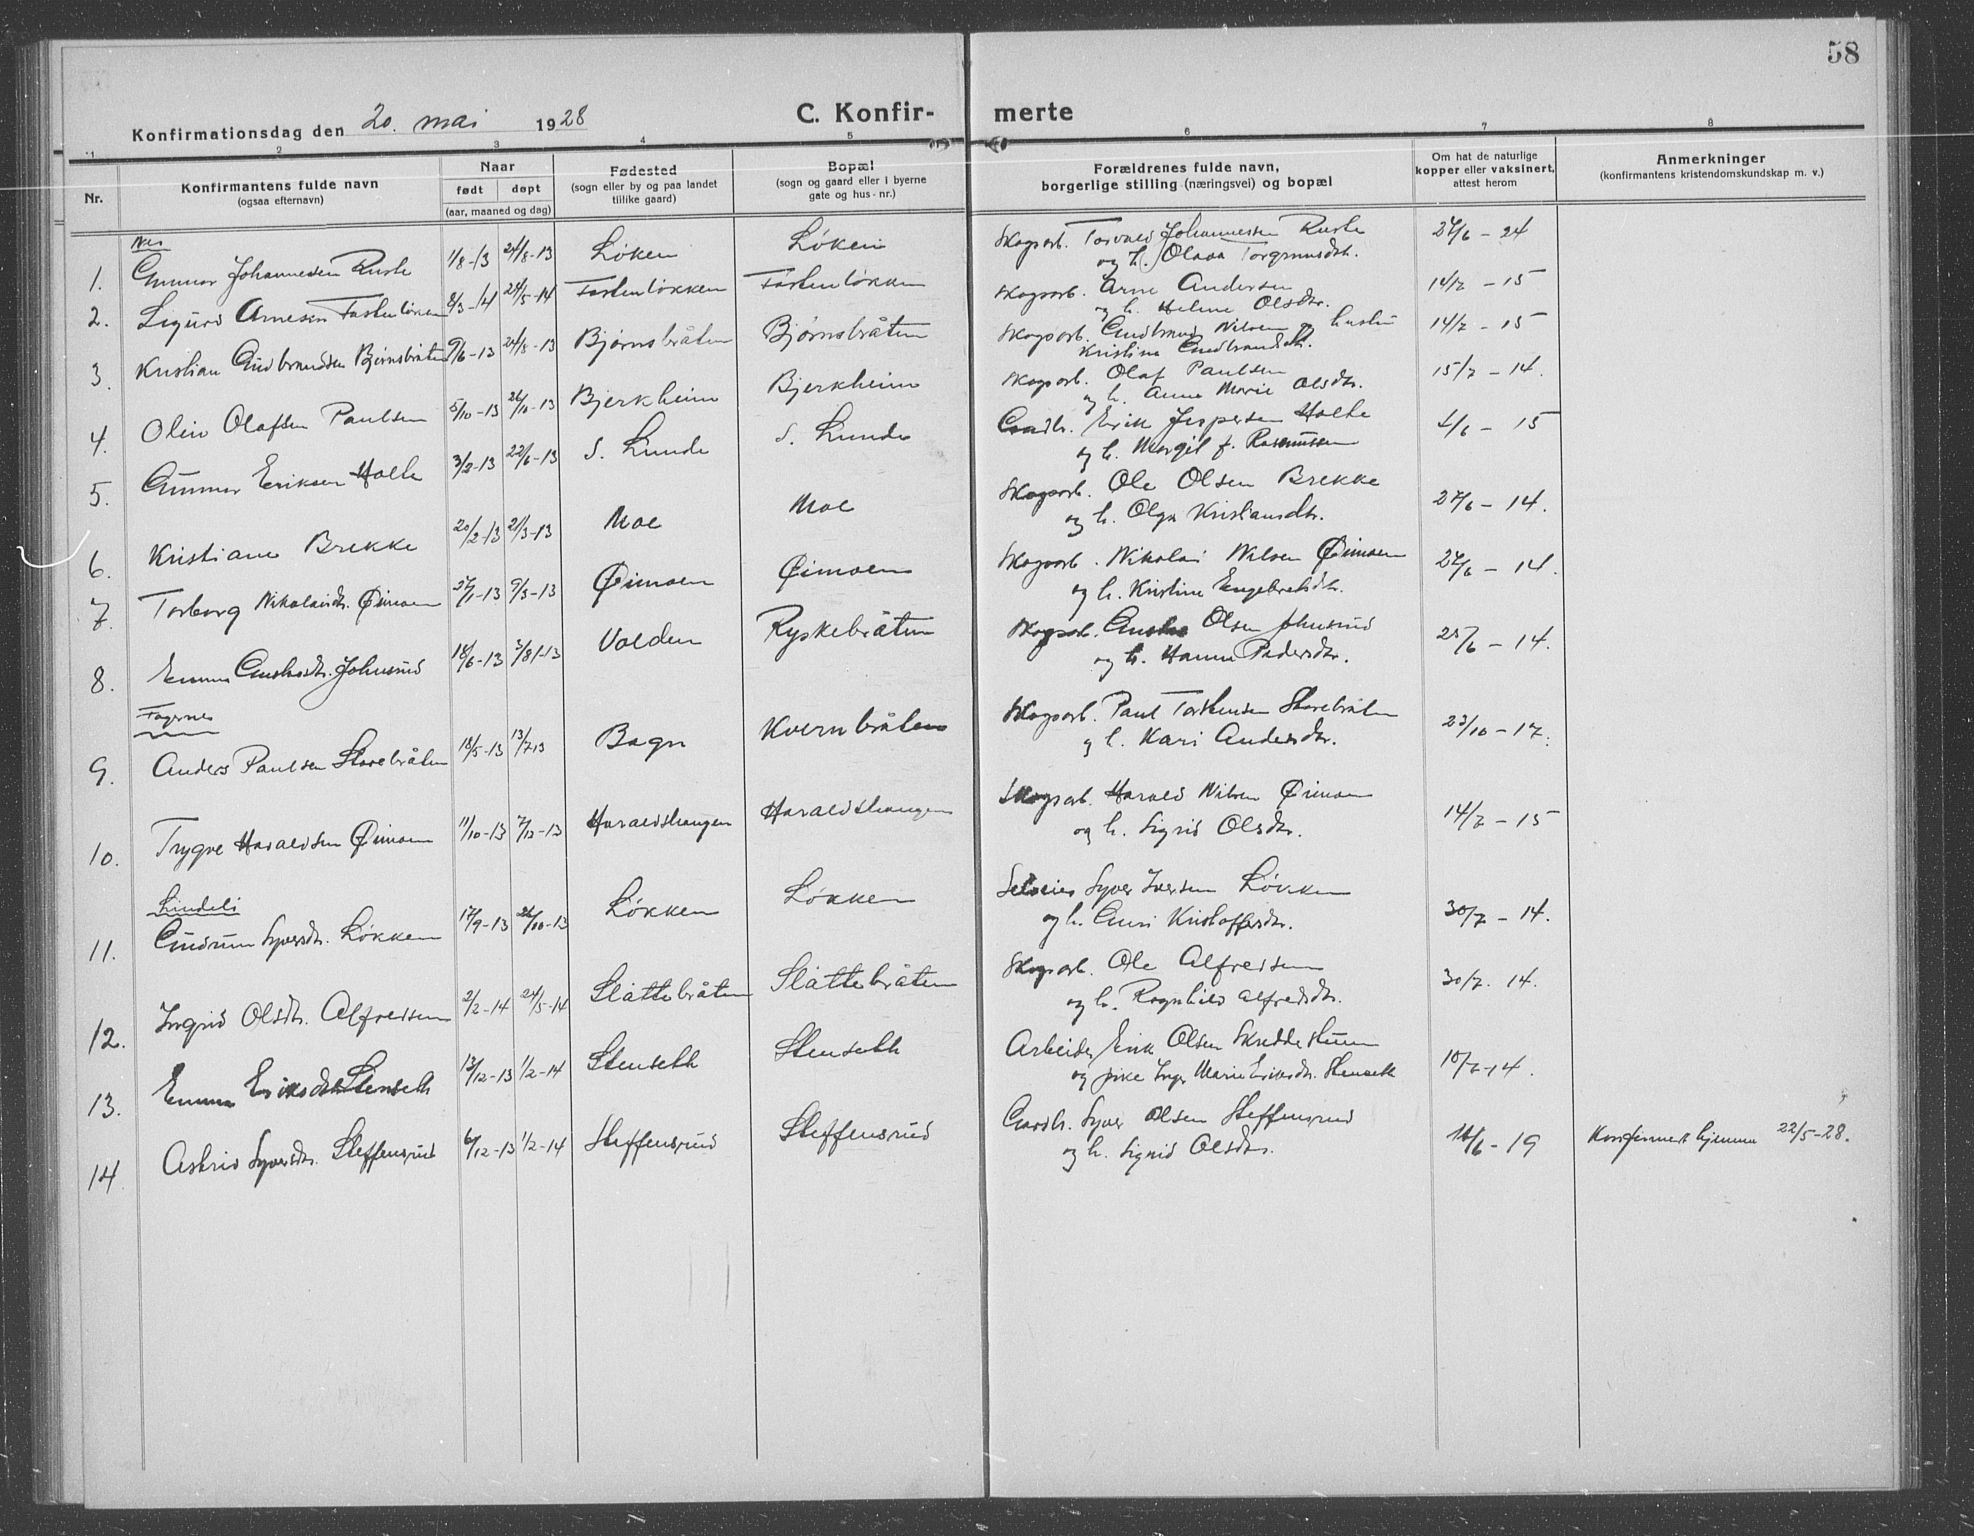 58
Konfirmationsdag den 20. mai 1928
C. Konfirmerte
1 2 3 4 5 6 7 8
Nr.
Konfirmantens fulde navn
(ogsaa efternavn)
Naar
født døpt
(aar, maaned og dag)
Fødested
(sogn eller by og paa landet
tillike gaard)
Bopæl
(sogn og gaard eller i byerne
gate og hus-nr.)
Forældrenes fulde navn,
borgerlige stilling (næringsvei) og bopæl
Om hat de naturlige
kopper eller vaksinert,
attest herom
Anmerkninger
(konfirmantens kristendomskundskap m. v.)
Nes
1. Gunnar Johannesen Ruste 1/8-13 24/8-13 Løken Løken Skogsarb. Torvald Johannessen Ruste 27/6 - 24
og h. Olava Torgrimsdtr.
2. Sigurd Arnesen Fostenløken 8/3-14 24/5-14 Fostenløkken Fostenløkken Skogsarb. Arne Andersen 14/7 - 15
og h. Helene Olsdtr.
3. Kristian Gudbrandsen Bjørnsbråten 9/6-13 24/8-13 Bjørnsbråten Bjørnsbråten Skogsarb. Gudbrand Nilsen og hustru 14/7 - 15
Kristine Gudbrandsdtr.
4. Olin Olafsen Paulsen 5/10-13 26/10-13 Bjerkheim Bjerkheim Skogsarb. Olaf Paulsen 15/7 - 14.
og h. Anne Marie Olsdtr.
5. Gunnar Eriksen Holte 3/2-13 22/6-13 S. Lunde S. Lunde Gardbr. Erik Jespersen Holte 4/6 - 15
og h. Margit f. Rasmussen
6. Kristiane Brekke 20/2-13 21/3-13 Moe Moe Skogsarb. Ole Olsen Brekke 27/6 - 14.
og h. Olga Kristiansdtr.
7. Torborg Nikolaisdtr. Øimoen 27/1-13 9/3-13 Øimoen Øimoen Skogsarb. Nikolai Nilsen Øimoen 27/6 - 14.
og h. Kristine Engebretsdtr.
8. Emma Johnsrud 18/6-13 3/8-13 Volden Ryskebråten Skogsarb. Olsen Johnsrud 25/6 - 14.
og h. Hanna Pedersdtr.
Fagernes
9. Anders Paulsen Storebråten 18/5-13 13/7-13 Bagn Kvernbråten Skogsarb. Paul Torstensen Storebråten 23/10 - 17.
og h. Kari Andersdtr.
10. Trygve Haraldsen Øimoen 11/10-13 7/12-13 Haraldshaugen Haraldshaugen Skogsarb. Harald Nilsen Øimoen 14/7 - 15
og h. Sigrid Olsdtr.
Lindeli
11. Gudrun Syversdtr. Løkken 17/9-13 26/10-13 Løkken Løkken Selveier Syver Iversen Løkken 30/7 - 14.
og h. Guri Kristoffersdtr.
12. Ingrid Olsdtr. Alfredsen 2/2-14 24/5-14 Slåttebråten Slåttebråten Skogsarb. Ole Alfredsen 30/7 - 14.
og h. Ragnhild Alfredsdtr.
13. Emma Eriksdtr. Stenseth 13/12-13 1/2-14 Stenseth Stenseth Arbeider Erik Olsen Skreddestuen 10/7-14.
og pike Inger Marie Eriksdtr. Stenseth
14. Astrid Syversdtr. Steffensrud 6/12-13 1/2-14 Steffensrud Steffensrud Gardbr. Syver Olsen Steffensrud 16/6-19 Konfirmert hjemme 22/5-28.
og h. Sigrid Olsdtr.